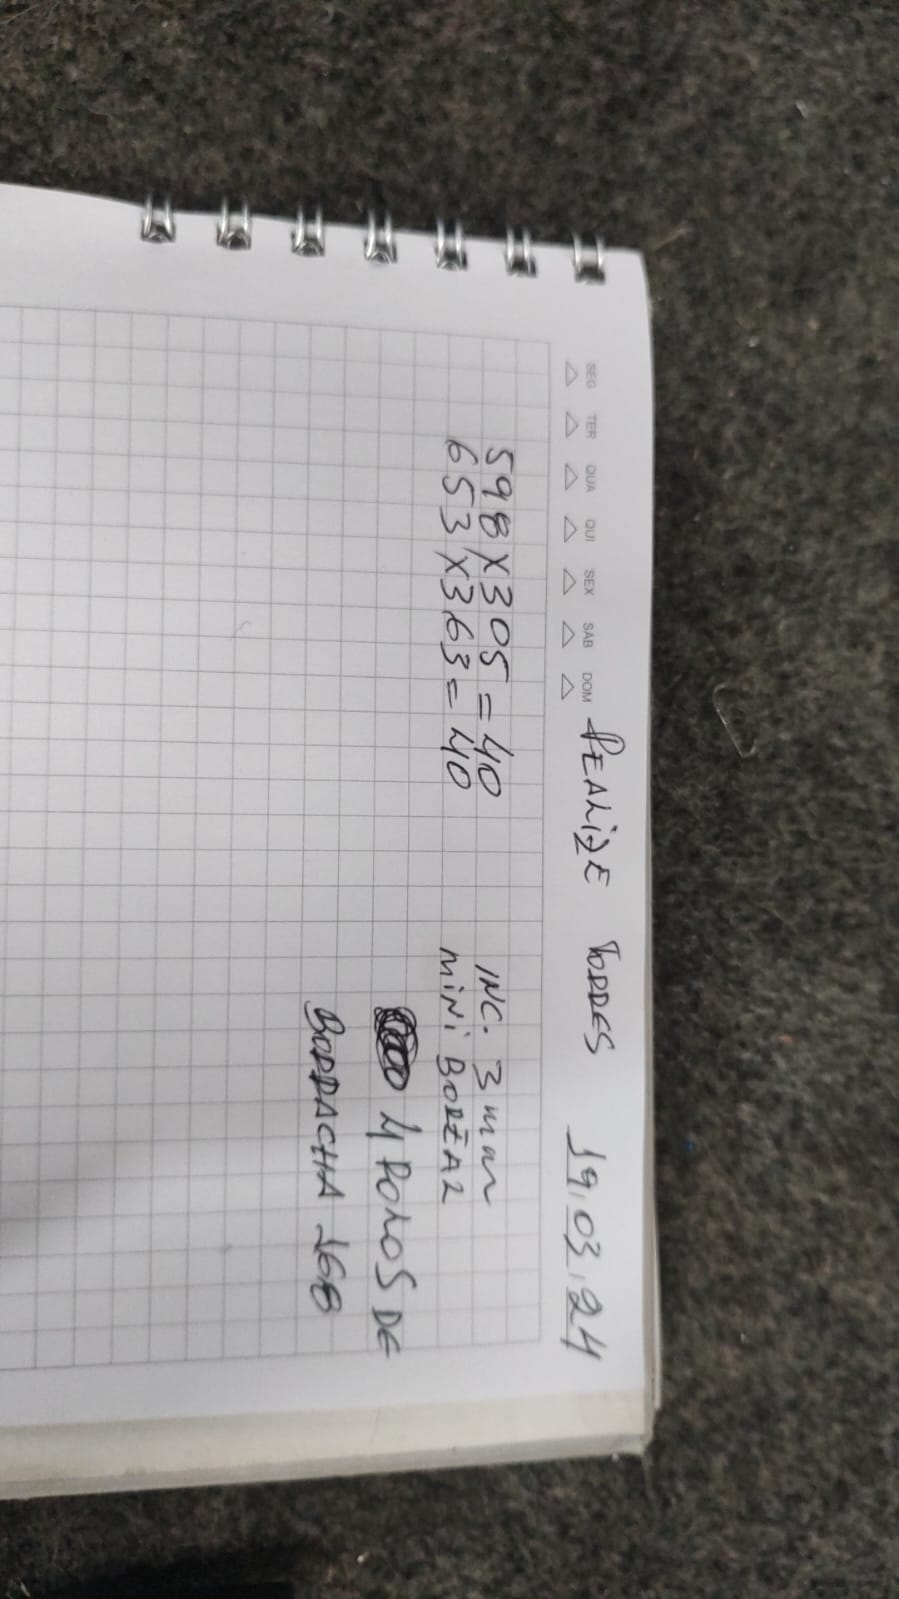 SEG TER QUA QUI SEX SAB DOM
REALIZE TORRES 19.03.24
598X305=40 INC. 3mm
653X363=40 MINI BOREAL
4 ROLOS DE
BORRACHA 168